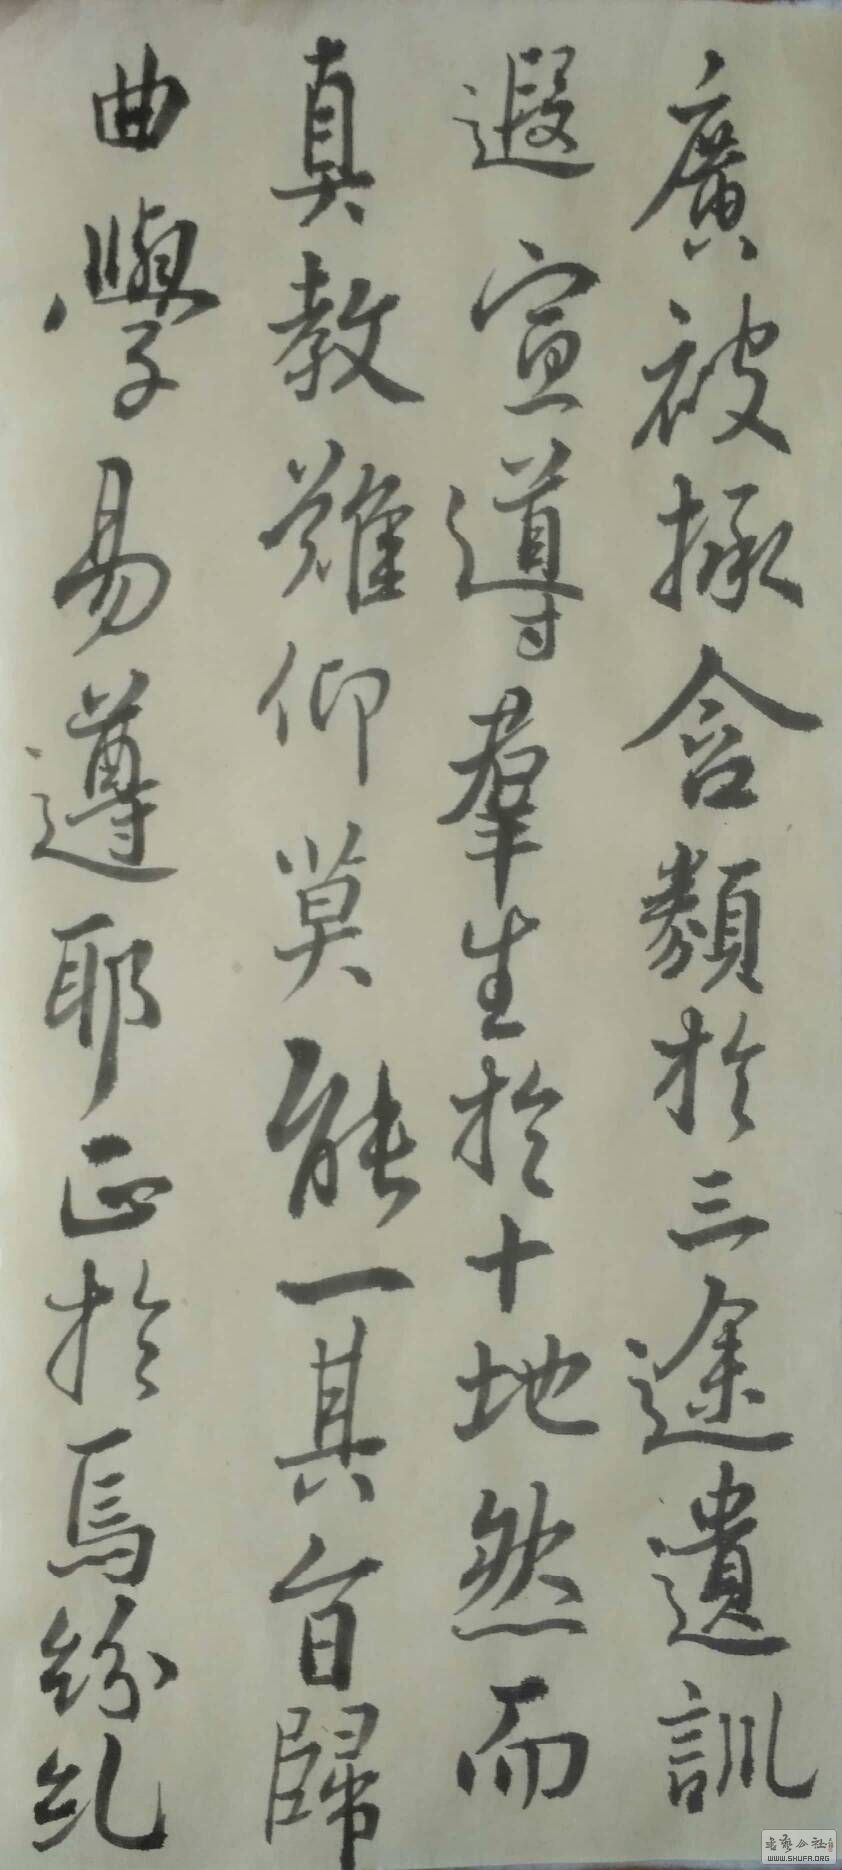 廣被拯含類於三途遺訓
遐宣導羣生於十地然而
真教難仰莫能一其旨歸
曲學易遵耶正於焉紛糺
書藝公社
WWW.SHUFA.ORG